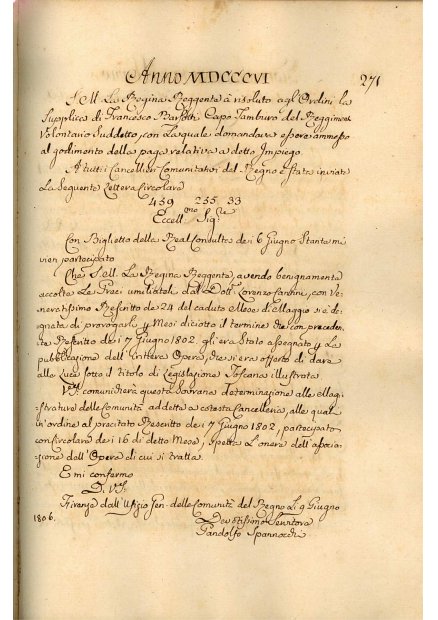 Anno MDCCCVI
271
S. M. La Regina Reggente à risoluto agl'Ordini la
Supplica di Francesco Capo Tamburo del Reggimto
Volontario Suddetto, con La quale domandava essere ammesso
al godimento della paga relativa a detto Impiego.
A tutti i Cancellieri Comunitativi del Regno è stata inviata
La Seguente Lettera Circolare
459 255 33
Eccellmo Sigre
Con Biglietto della Real Consulta de i 6 Giugno Stante mi
vien partecipato
Che S. M. La Regina Reggente, avendo benignamente
accolte Le Preci umiliatele dal Dott. Lorenzo Cantini, con Ve-
neratissimo Rescritto de 24 del caduto Mese di Maggio si è de-
gnata di prorogarli p Mesi diciotto il termine che con preceden-
te Rescritto de i 7 Giugno 1802. gli era Stato assegnato p La
pubblicazione dell'intera Opera, che si era offerto di dare
alla Luce sotto il titolo di Legislazione Toscana illustrata
VS. comunicherà questa Sovrana determinazione alle Magi-
strature delle Comunità addette a cotesta Cancelleria, alle quali
in ordine al precitato Rescritto de i 7 Giugno 1802, partecipato
con Circolare de i 16 di detto Mese, spetta L'onere dell'associa-
zione dell'Opera di cui si tratta.
E mi confermo
D. VS.
Firenze dall'Ufizio Gen. delle Comunità del Regno Li 9 Giugno
1806.
Devotissimo Servitore
Pandolfo Spannocchi